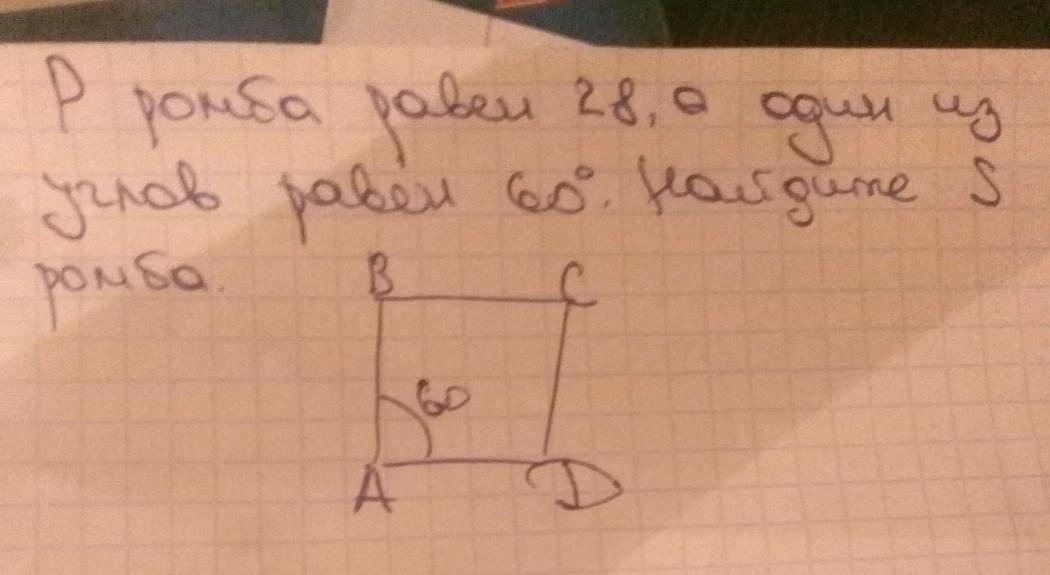 P ромба равен 28, а один из
углов равен 60°. Найдите S
ромба.
B C
60
A D